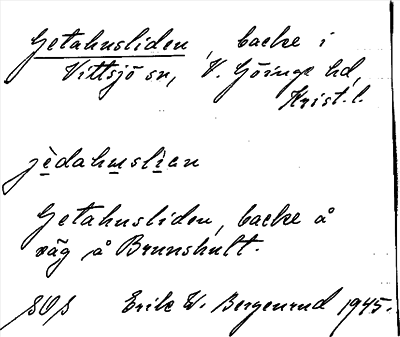 Getahusliden, backe i
Vittsjö sn, V. Göinge hd,
Krist. l.
jèdahuslìan
Getahusliden, backe å
väg å Brunshult.
SOS Erik W. Bergenrud 1945.